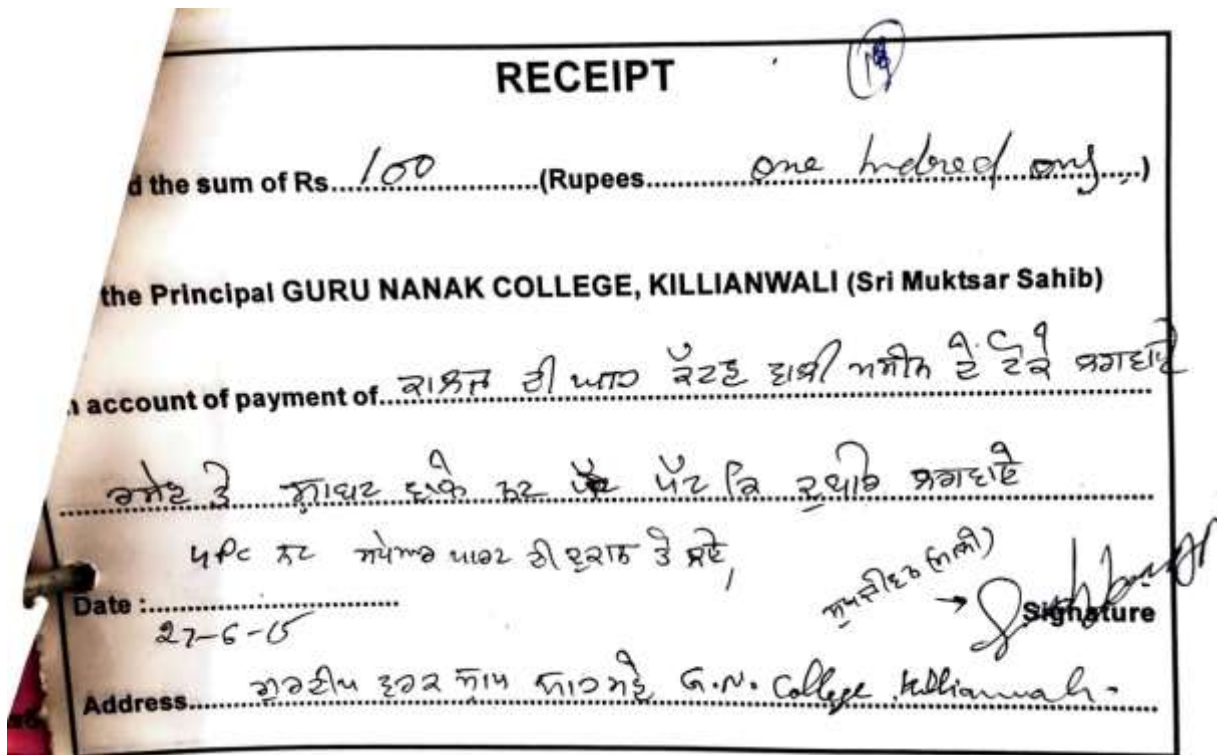 RECEIPT
d the sum of Rs....100....(Rupees....one hndred only....)
the Principal GURU NANAK COLLEGE, KILLIANWALI (Sri Muktsar Sahib)
account of payment of....ਕਾਲਜ ਦੀ ਘਾਹ ਕੱਟਣ ਵਾਲੀ ਮਸੀਨ ਦੇ ਟੋਕੇ ਲਗਵਾਏ
ਤੇ ਨਟ ਪੱਟ ਕਿ ਦੁਬਾਰਾ ਲਗਵਾਏ
4Pc ਨਟ ਪਾਰਟ ਦੀ ਦੁਕਾਨ ਤੇ ਲਏ,
(ਮਾਲੀ) →
Date :....
Signature
27-6-15
Address....ਗੁਰਦੀਪ ਵਰਕ ਸ਼ਾਪ ਸਾਹਮਣੇ G.N. College Killianwali.